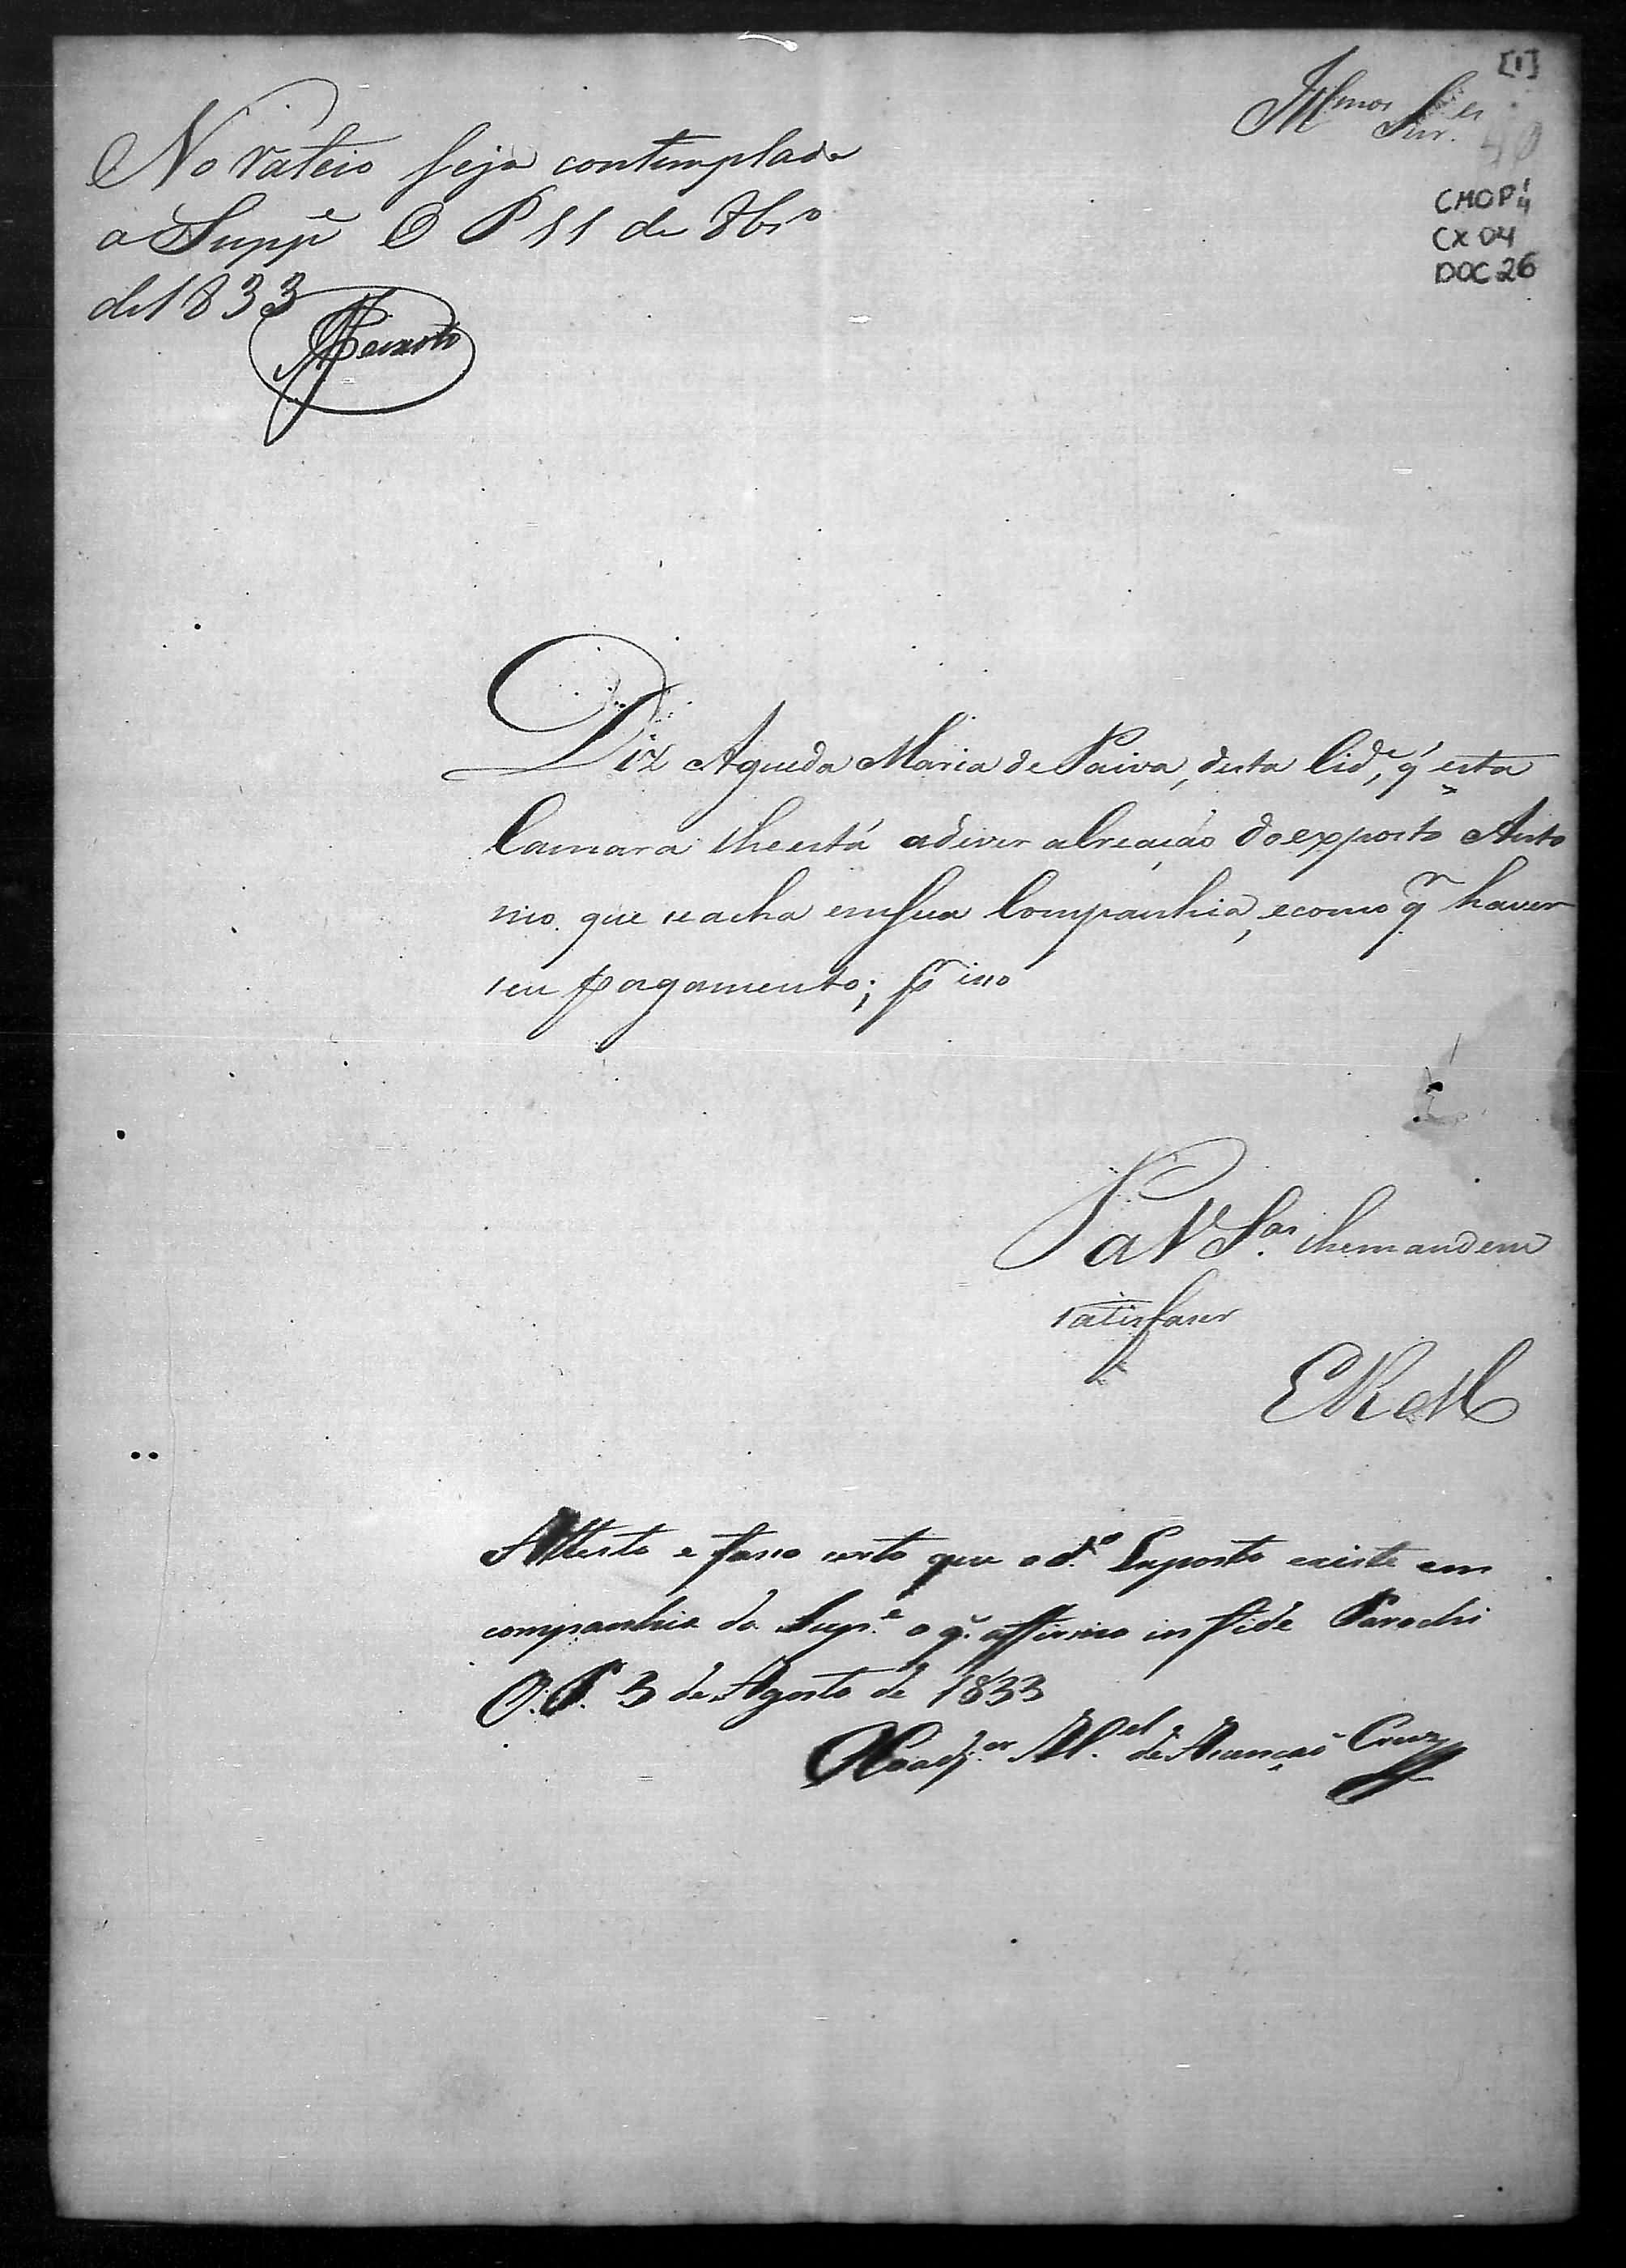 [1]
Illmos Snr.es
CMOP 1/4
CX 04
DOC 26
No rateio seja contemplada
a Suppe O P 11 de 8bro
de 1833
Peixoto
Diz Agueda Maria de Paiva, desta Cide, q' esta
Camara lhe está a dever a Creação do exposto Anto
nio que se acha em sua Companhia, e como qr haver
seu pagamento; pr isso
P a V Sas. lhe mandem
satisfaser
E R M
Attesto e faso certo que o d.o Exposto existe em
companhia da Sup.e o q. affirmo in fide Parochi
O. P. 3 de Agosto de 1833
O Coadj.or M.el de Assumçaõ Cruz